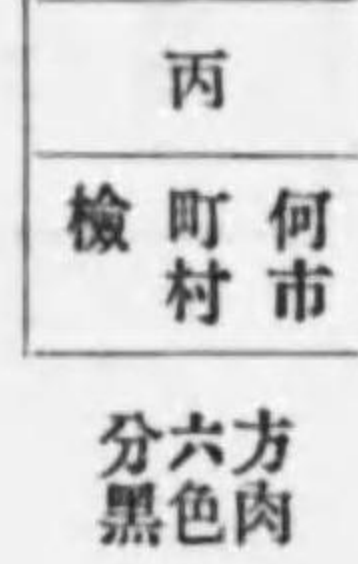 丙
何市
町村
檢
方六分
肉色黑